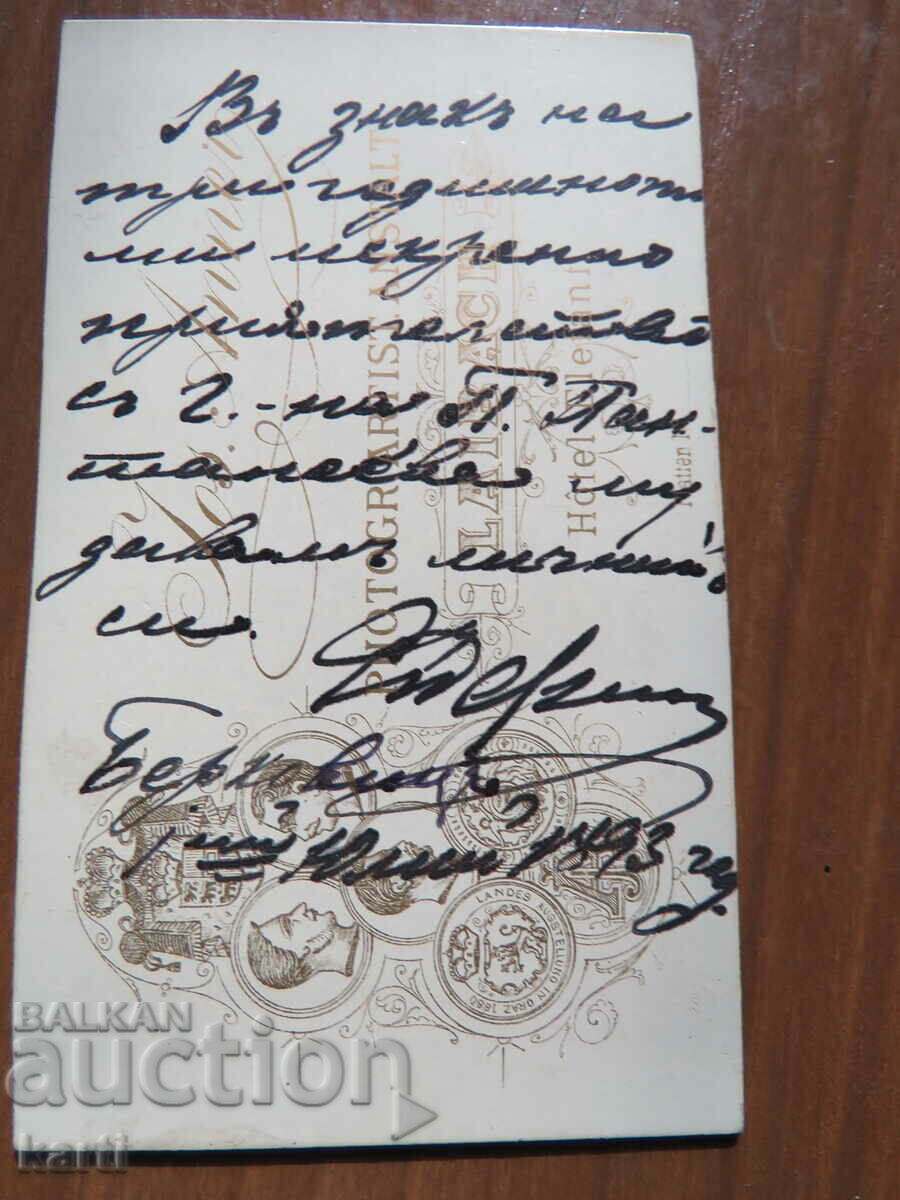 Въ знакъ на
тригодишното
ми искренно
приятелство
съ Г.-на П. Пан-
му
давамъ
си.
Берковица,
1ий Юлий 1893 год.
PHOTOGR. ARTIST. ANSTALT
LAIBACH
Hôtel
LANDES AUSSTELLUNG IN GRAZ 1880
BALKAN
auction
karti